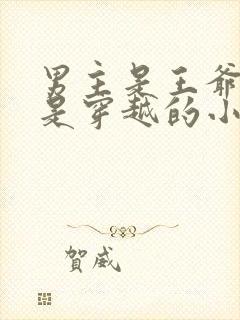 男主是王爷
是穿越的小
賀威